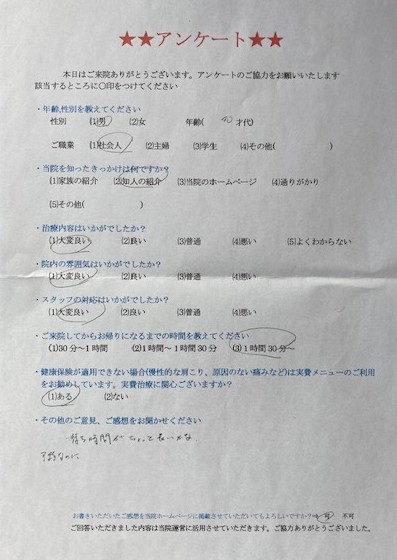 ★★アンケート★★
本日はご来院ありがとうございます。アンケートのご協力をお願いいたします
該当するところに〇印をつけてください
・年齢,性別を教えてください
性別 (1)男 (2)女 年齢( 40 才代)
ご職業 (1)社会人 (2)主婦 (3)学生 (4)その他( )
・当院を知ったきっかけは何ですか?
(1)家族の紹介 (2)知人の紹介 (3)当院のホームページ (4)通りがかり
(5)その他( )
・治療内容はいかがでしたか?
(1)大変良い (2)良い (3)普通 (4)悪い (5)よくわからない
・院内の雰囲気はいかがでしたか?
(1)大変良い (2)良い (3)普通 (4)悪い
・スタッフの対応はいかがでしたか?
(1)大変良い (2)良い (3)普通 (4)悪い
・ご来院してからお帰りになるまでの時間を教えてください
(1)30分～1時間 (2)1時間～1時間30分 (3)1時間30分～
・健康保険が適用できない場合(慢性的な肩こり、原因のない痛みなど)は実費メニューのご利用
をお勧めしています。実費治療に関心ございますか?
(1)ある (2)ない
・その他のご意見、ご感想をお聞かせください
待ち時間がちょっと長いかな
お書きいただいたご感想を当院ホームページに掲載させていただいてもよろしいですか? 可 不可
ご回答いただきました内容は当院運営に活用させていただきます。ご協力ありがとうございました。